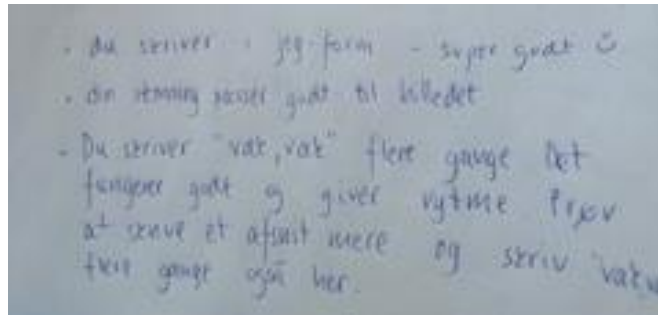 - du skriver i jeg-form - super godt ☺
- din stemning passer godt til billedet
- Du skriver "vak, vak" flere gange Det
fungerer godt og giver rytme Prøv
at skrive et afsnit mere og skriv "vak, v
flere gange også her.